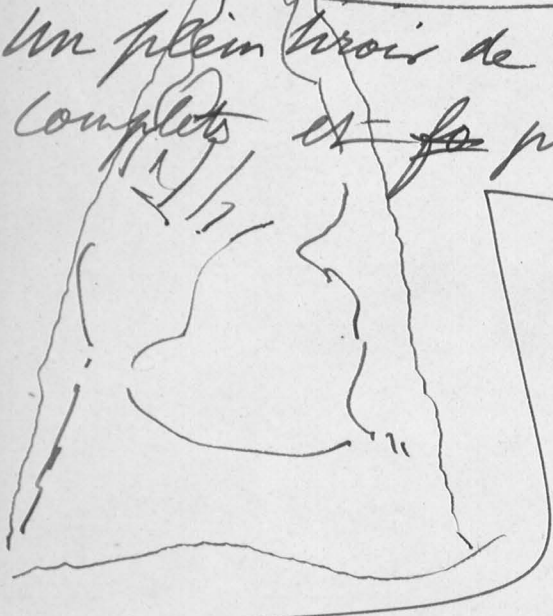 Un plein tiroir de
complets et